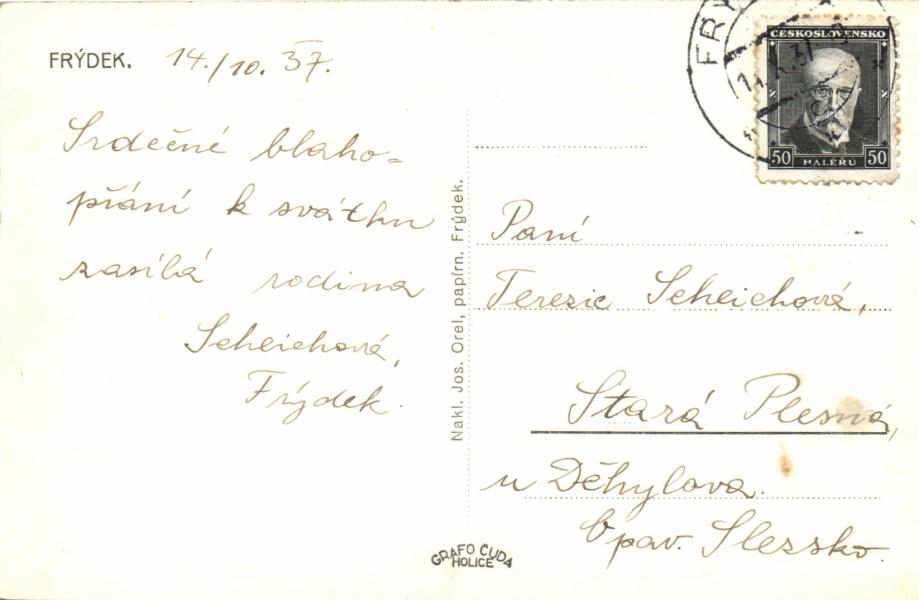 FRÝDEK. 14./10. 37.
Srdečné blaho=
přání k svátku
zasílá rodina
Scheichová,
Frýdek.
Nakl. Jos. Orel, papírn. Frýdek.
GRAFO ČUDA
HOLICE
ČESKOSLOVENSKO
50 HALÉŘŮ 50
Paní
Terezie Scheichová,
Stará Plesná,
u Děhylova.
Opav. Slezsko